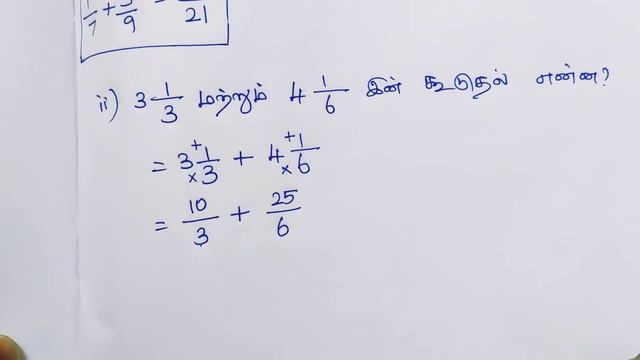 7 + 9 = 21
ii) 3 1/3 மற்றும் 4 1/6 இன் கூடுதல் என்ன?
= 3 + 1/× 3 + 4 + 1/× 6
= 10/3 + 25/6